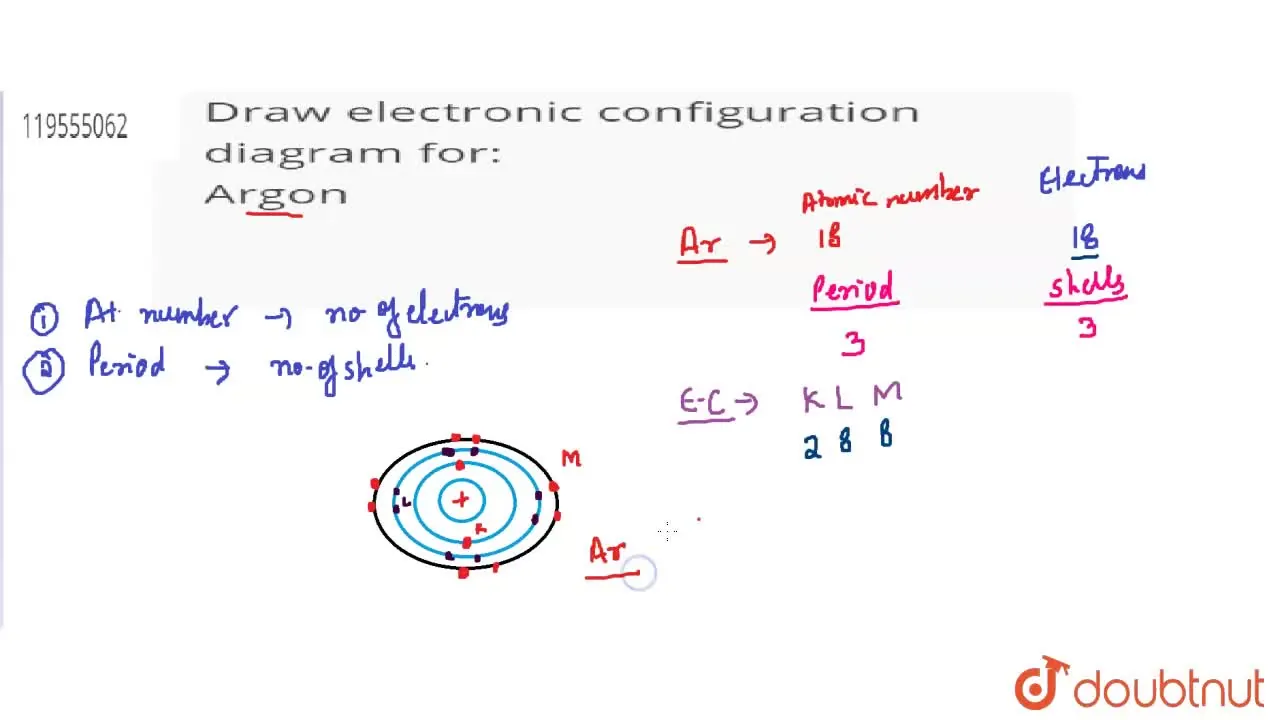 119555062
Draw electronic configuration
diagram for:
Argon
Atomic number Electrons
Ar → 18 18
Period shells
3 3
① At. number → no of electrons
② Period → no. of shells.
E-C → K L M
2 8 8
M
L
+
K
Ar
doubtnut